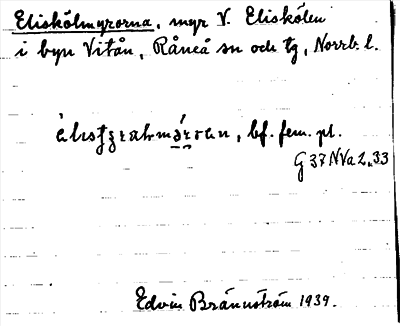 Eliskölmyrorna, myr V. Eliskölen
i byn Vitån, Råneå sn och tg, Norrb. l.
bf. fem. pl.
G 37 NVa 2, 33
Edvin Brännström 1939.